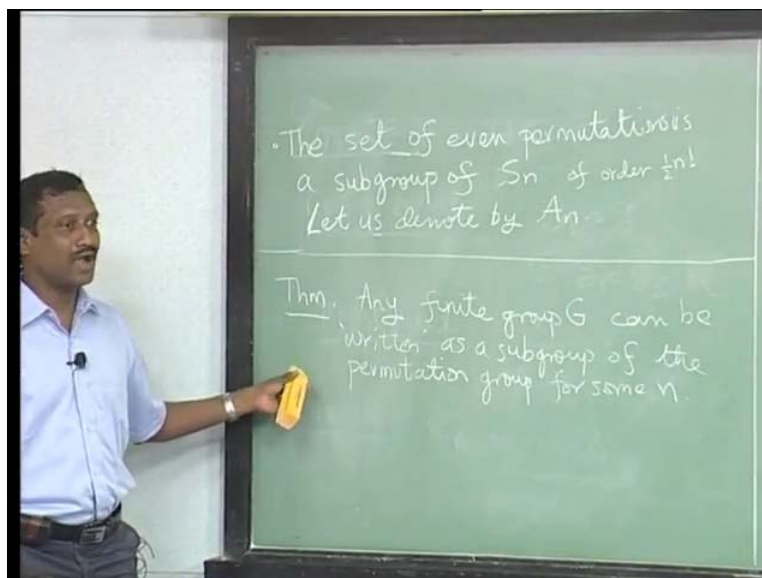 • The set of even permutations is
a subgroup of Sn of order ½n!
Let us denote by An.
Thm. Any finite group G can be
'written' as a subgroup of the
permutation group for some n.